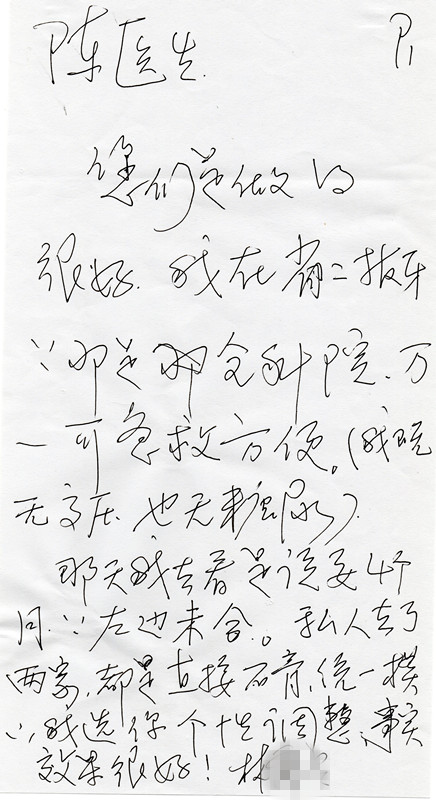 陈医生 P1
您们是做的
很好。我在省二拔牙
∵那是全科院、万
一可急救方便。(我既
无高压、也无糖尿)
那天我去看是说要4个
月∵左边未合。私人去了
两家,都是直接石膏统一模
∴我选你个性调整、事实
效果很好!林